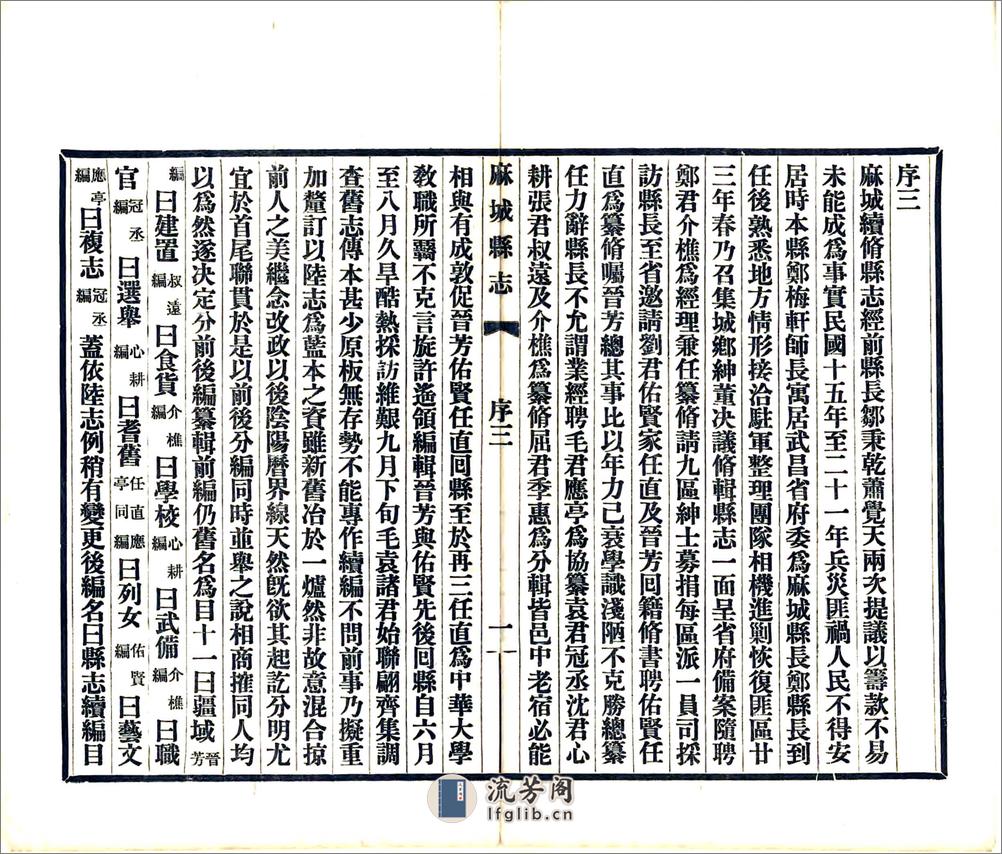 序三
麻城續脩縣志經前縣長鄒秉乾蕭覺天兩次提議以籌款不易
未能成爲事實民國十五年至二十一年兵災匪禍人民不得安
居時本縣鄭梅軒師長寓居武昌省府委爲麻城縣長鄭縣長到
任後熟悉地方情形接洽駐軍整理團隊相機進剿恢復匪區廿
三年春乃召集城鄉紳董決議脩輯縣志一面呈省府備案隨聘
鄭君介樵爲經理兼任纂脩請九區紳士募捐每區派一員司採
訪縣長至省邀請劉君佑賢家任直及晉芳回籍脩書聘佑賢任
直爲纂脩囑晉芳總其事比以年力已衰學識淺陋不克勝總纂
任力辭縣長不允謂業經聘毛君應亭爲協纂袁君冠丞沈君心
耕張君叔遠及介樵爲纂脩屈君季惠爲分輯皆邑中老宿必能
麻城縣志 序三 一
相與有成敦促晉芳佑賢任直回縣至於再三任直爲中華大學
教職所羈不克言旋許遙領編輯晉芳與佑賢先後回縣自六月
至八月久旱酷熱採訪維艱九月下旬毛袁諸君始聯翩齊集調
查舊志傳本甚少原板無存勢不能專作續編不問前事乃擬重
加釐訂以陸志爲藍本之資雖新舊冶於一爐然非故意混合掠
前人之美繼念改政以後陰陽曆界線天然旣欲其起訖分明尤
宜於首尾聯貫於是以前後分編同時並舉之說相商搉同人均
以爲然遂決定分前後編纂輯前編仍舊名爲目十一曰疆域晉芳
編曰建置叔遠編曰食貨介樵編曰學校心耕編曰武備介樵編曰職
官冠丞編曰選舉心耕編曰耆舊任直應亭同編曰列女佑賢編曰藝文
應亭編曰複志冠丞編蓋依陸志例稍有變更後編名曰縣志續編目
流芳阁
lfglib.cn